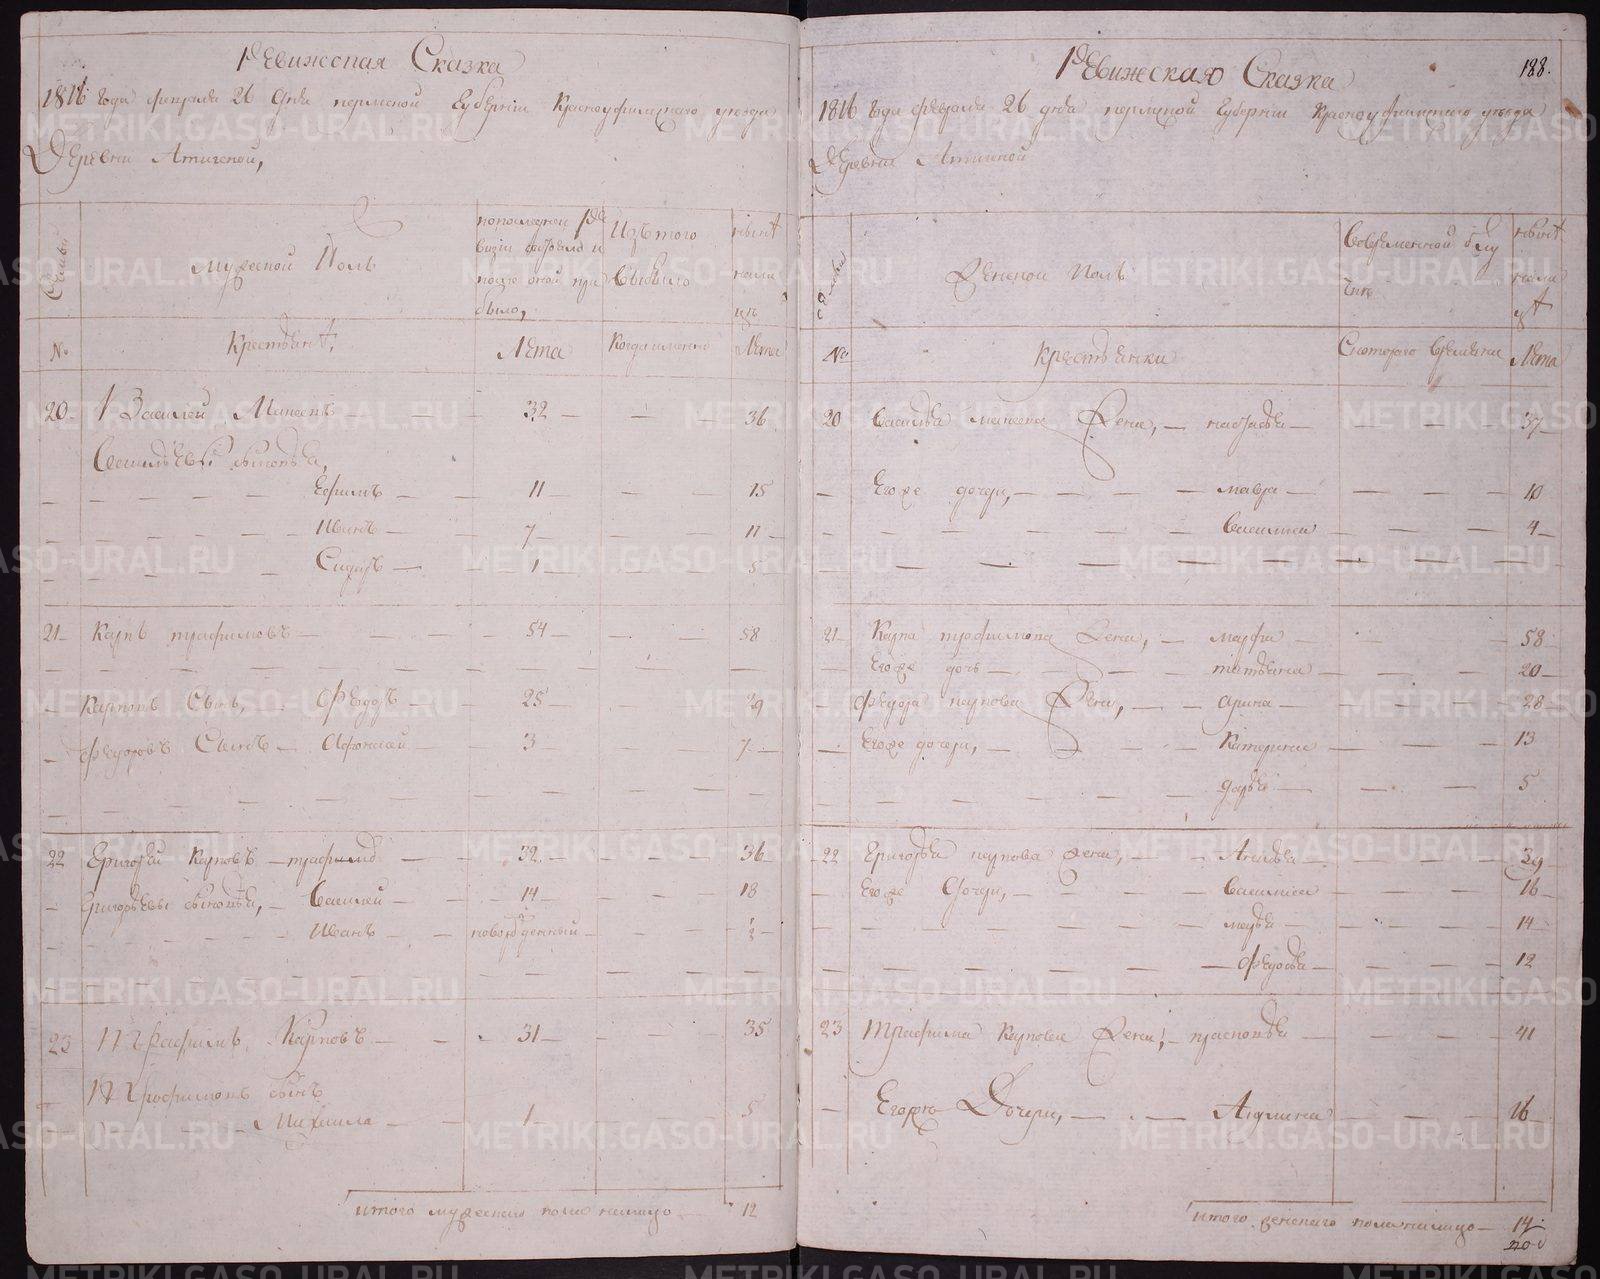 Ревижская Сказка
1816 Года февраля 26 дня пермской Губернии Красноуфимского уезда
Деревни Атигской,
Семьи
мужеской Полъ
попоследней Ре
визии состояло и
после оной при
было,
Изътого
выбыло
ныне
нали
цо
№
Крестьяне,
Лета
Когда именно
Лета
20 Василей Минеевъ — 32 — 36
Васильевы сыновья,
Ефимъ — 11 — 15
Иванъ — 7 — 11
Сидоръ — 1 — 5
21 Карпъ трафимовъ — 54 — 58
Карповъ Сынъ, Федоръ — 25 — 29
Федоровъ Сынъ — Афонасей — 3 — 7
22 Григорей Карповъ — 32 — 36
Григорьевы сыновья, — Василей — 14 — 18
Иванъ — новорожденный — 1/2
23 Трафимъ Карповъ — 31 — 35
Трофимовъ сынъ
Михаила — 1 — 5
итого мужескаго пола налицо — 12
Ревижская Сказка
188.
1816 Года февраля 26 дня пермской Губернии Красноуфимского уезда
Деревни Атигской
Семьи
Женской полъ
Вовременной отлу
чке
ныне
нали
це
№
крестьянки
Скотораго времяни
Лета
20 Василья минеева Жена, — настасья — 37
Егоже дочери, — мавра — 10
василиса — 4
21 Карпа трофимова Жена, — марфа — 58
Егоже дочь — татьяна — 20
Федора карпова Жена, — арина — 28
Егоже дочери, — Катерина — 13
дарья — 5
22 Григорья карпова жена, — 39
Егоже дочери, — василиса — 16
марья — 14
федосья — 12
23 Трафима Карпова Жена, — прасковья — 41
Егоже Дочери, — Акулина — 16
итого женскаго пола налицо — 14
METRIKI.GASO-URAL.RU